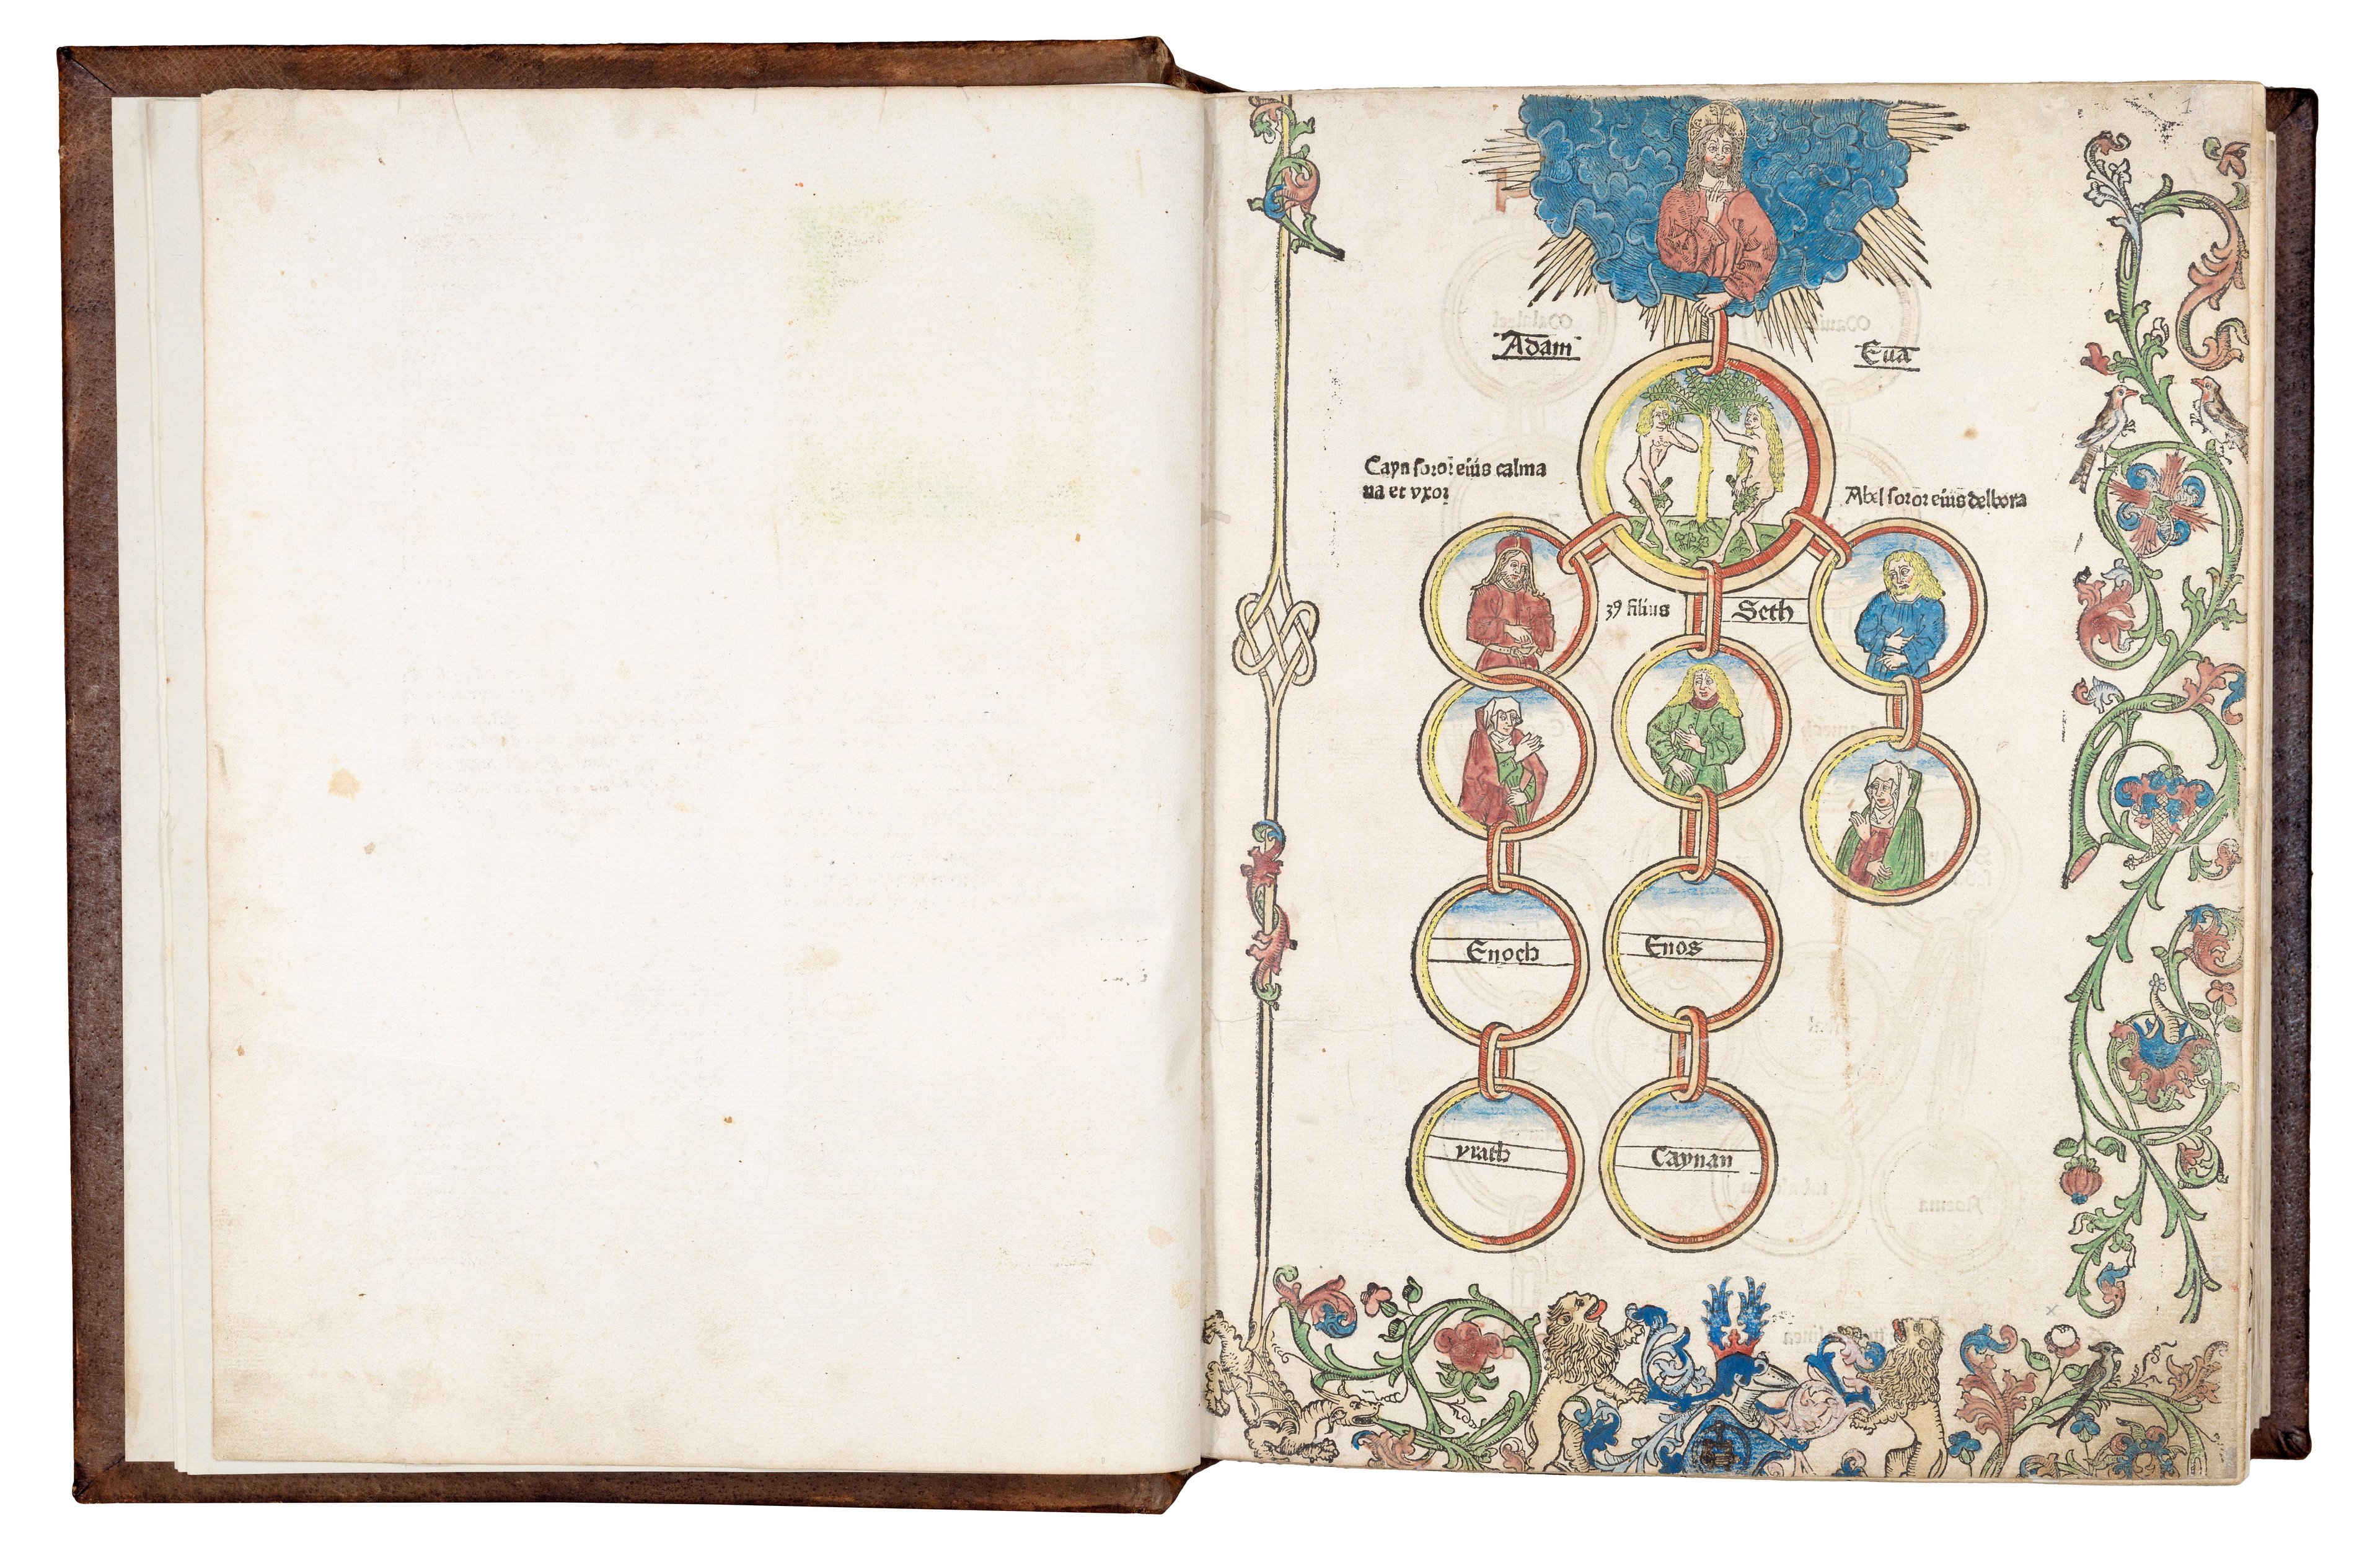 1
Adam
Eua
Cayn soror eius calma
na et vxor
Abel soror eius delbora
39 filius
Seth
Enoch
Enos
yrath
Caynan